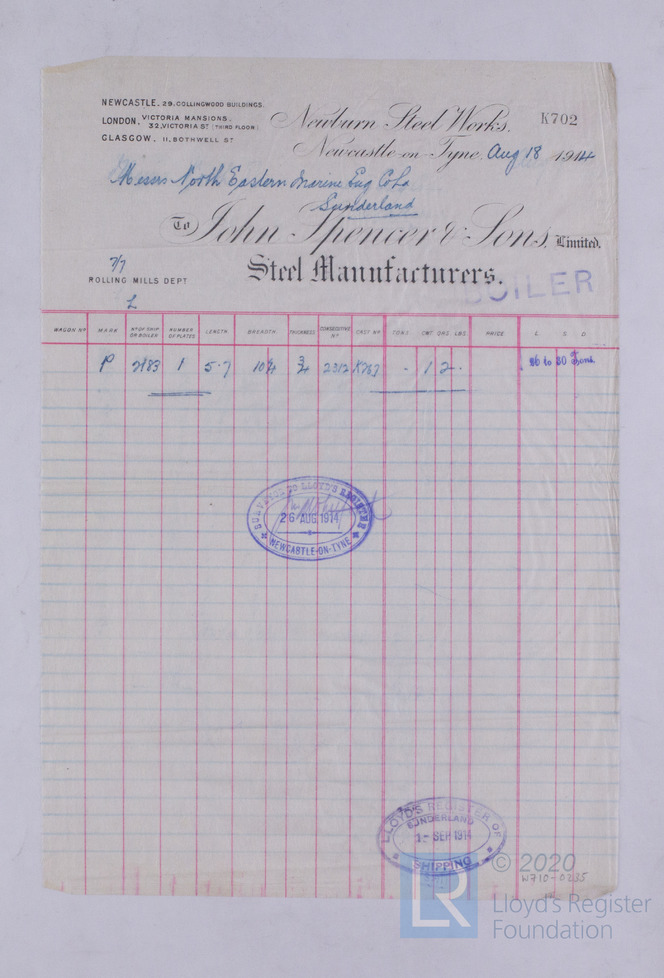 NEWCASTLE. 29. COLLINGWOOD BUILDINGS.
LONDON, VICTORIA MANSIONS,
32, VICTORIA ST (THIRD FLOOR)
GLASGOW, 11, BOTHWELL ST
Newburn Steel Works,
K702
Newcastle-on-Tyne, Aug 18 1914
Messrs North Eastern Marine Eng Co Ld
Sunderland
To John Spencer & Sons, Limited.
Steel Manufacturers.
7/7
ROLLING MILLS DEPT
BOILER
L
WAGON No MARK No OF SHIP OR BOILER NUMBER OF PLATES LENGTH BREADTH THICKNESS CONSECUTIVE No CAST No TONS CWT QRS LBS. PRICE £ S D
P 2183 1 5.7 10¼ ¾ 2312 K787 - 1 2 - 26 to 30 Tons.
SURVEYOR TO LLOYD'S REGISTER
26 AUG. 1914
NEWCASTLE-ON-TYNE
LLOYD'S REGISTER OF
SUNDERLAND
SEP 1914
SHIPPING
© 2020
W710-0235
LR
Lloyd's Register
Foundation